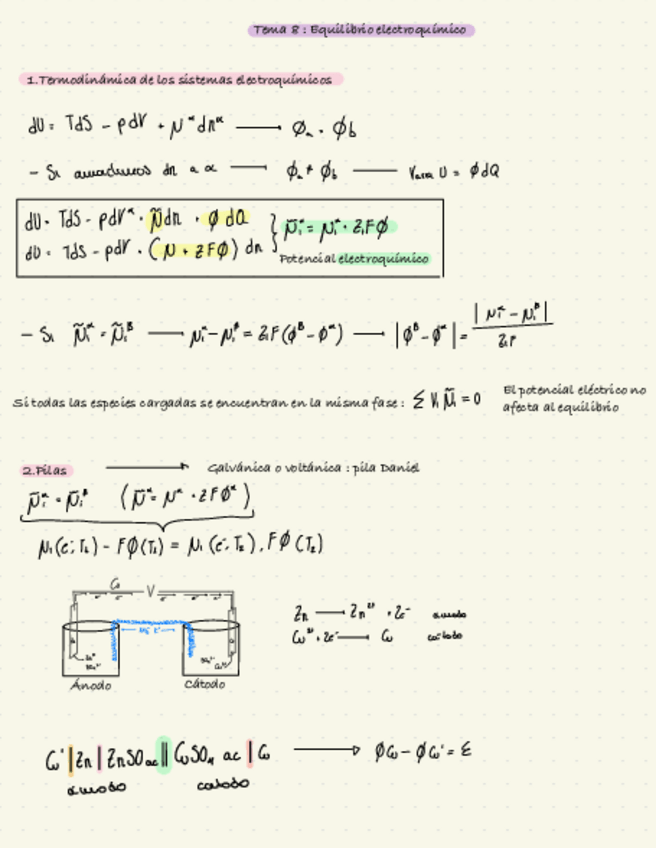 Tema 8 : Equilibrio electroquímico
1.Termodinámica de los sistemas electroquímicos
dU = TdS - pdV + μᵅdnᵅ → ϕₐ = ϕb
- Si añadimos dn a α → ϕₐ ≠ ϕb — U = ϕdQ
dU = TdS - pdVᵅ + μ̃dn + ϕ dQ
dU = TdS - pdV + (μ + zFϕ) dn } μ̃ᵢᵅ = μᵢᵅ + zᵢFϕ
Potencial electroquímico
- Si μ̃ᵢᵅ = μ̃ᵢᴮ → μᵢᵅ - μᵢᴮ = zᵢF(ϕᴮ - ϕᵅ) → |ϕᴮ - ϕᵅ| = |μᵢᵅ - μᵢᴮ| / zᵢF
Si todas las especies cargadas se encuentran en la misma fase : Σ νᵢ μ̃ᵢ = 0 El potencial eléctrico no
afecta al equilibrio
2.Pilas → Galvánica o voltánica : pila Daniel
μ̃ᵢᵅ = μ̃ᵢᴮ (μ̃ᵅ = μᵅ + zFϕᵅ)
μᵢ(e⁻; T₁) - Fϕ(T₁) = μᵢ(e⁻; T₂) - Fϕ(T₂)
Cu V
Zn → Zn²⁺ + 2e⁻ ánodo
Cu²⁺ + 2e⁻ → Cu cátodo
Ánodo Cátodo
Cu' | Zn | ZnSO₄ ac || CuSO₄ ac | Cu → ϕCu - ϕCu' = ε
ánodo cátodo